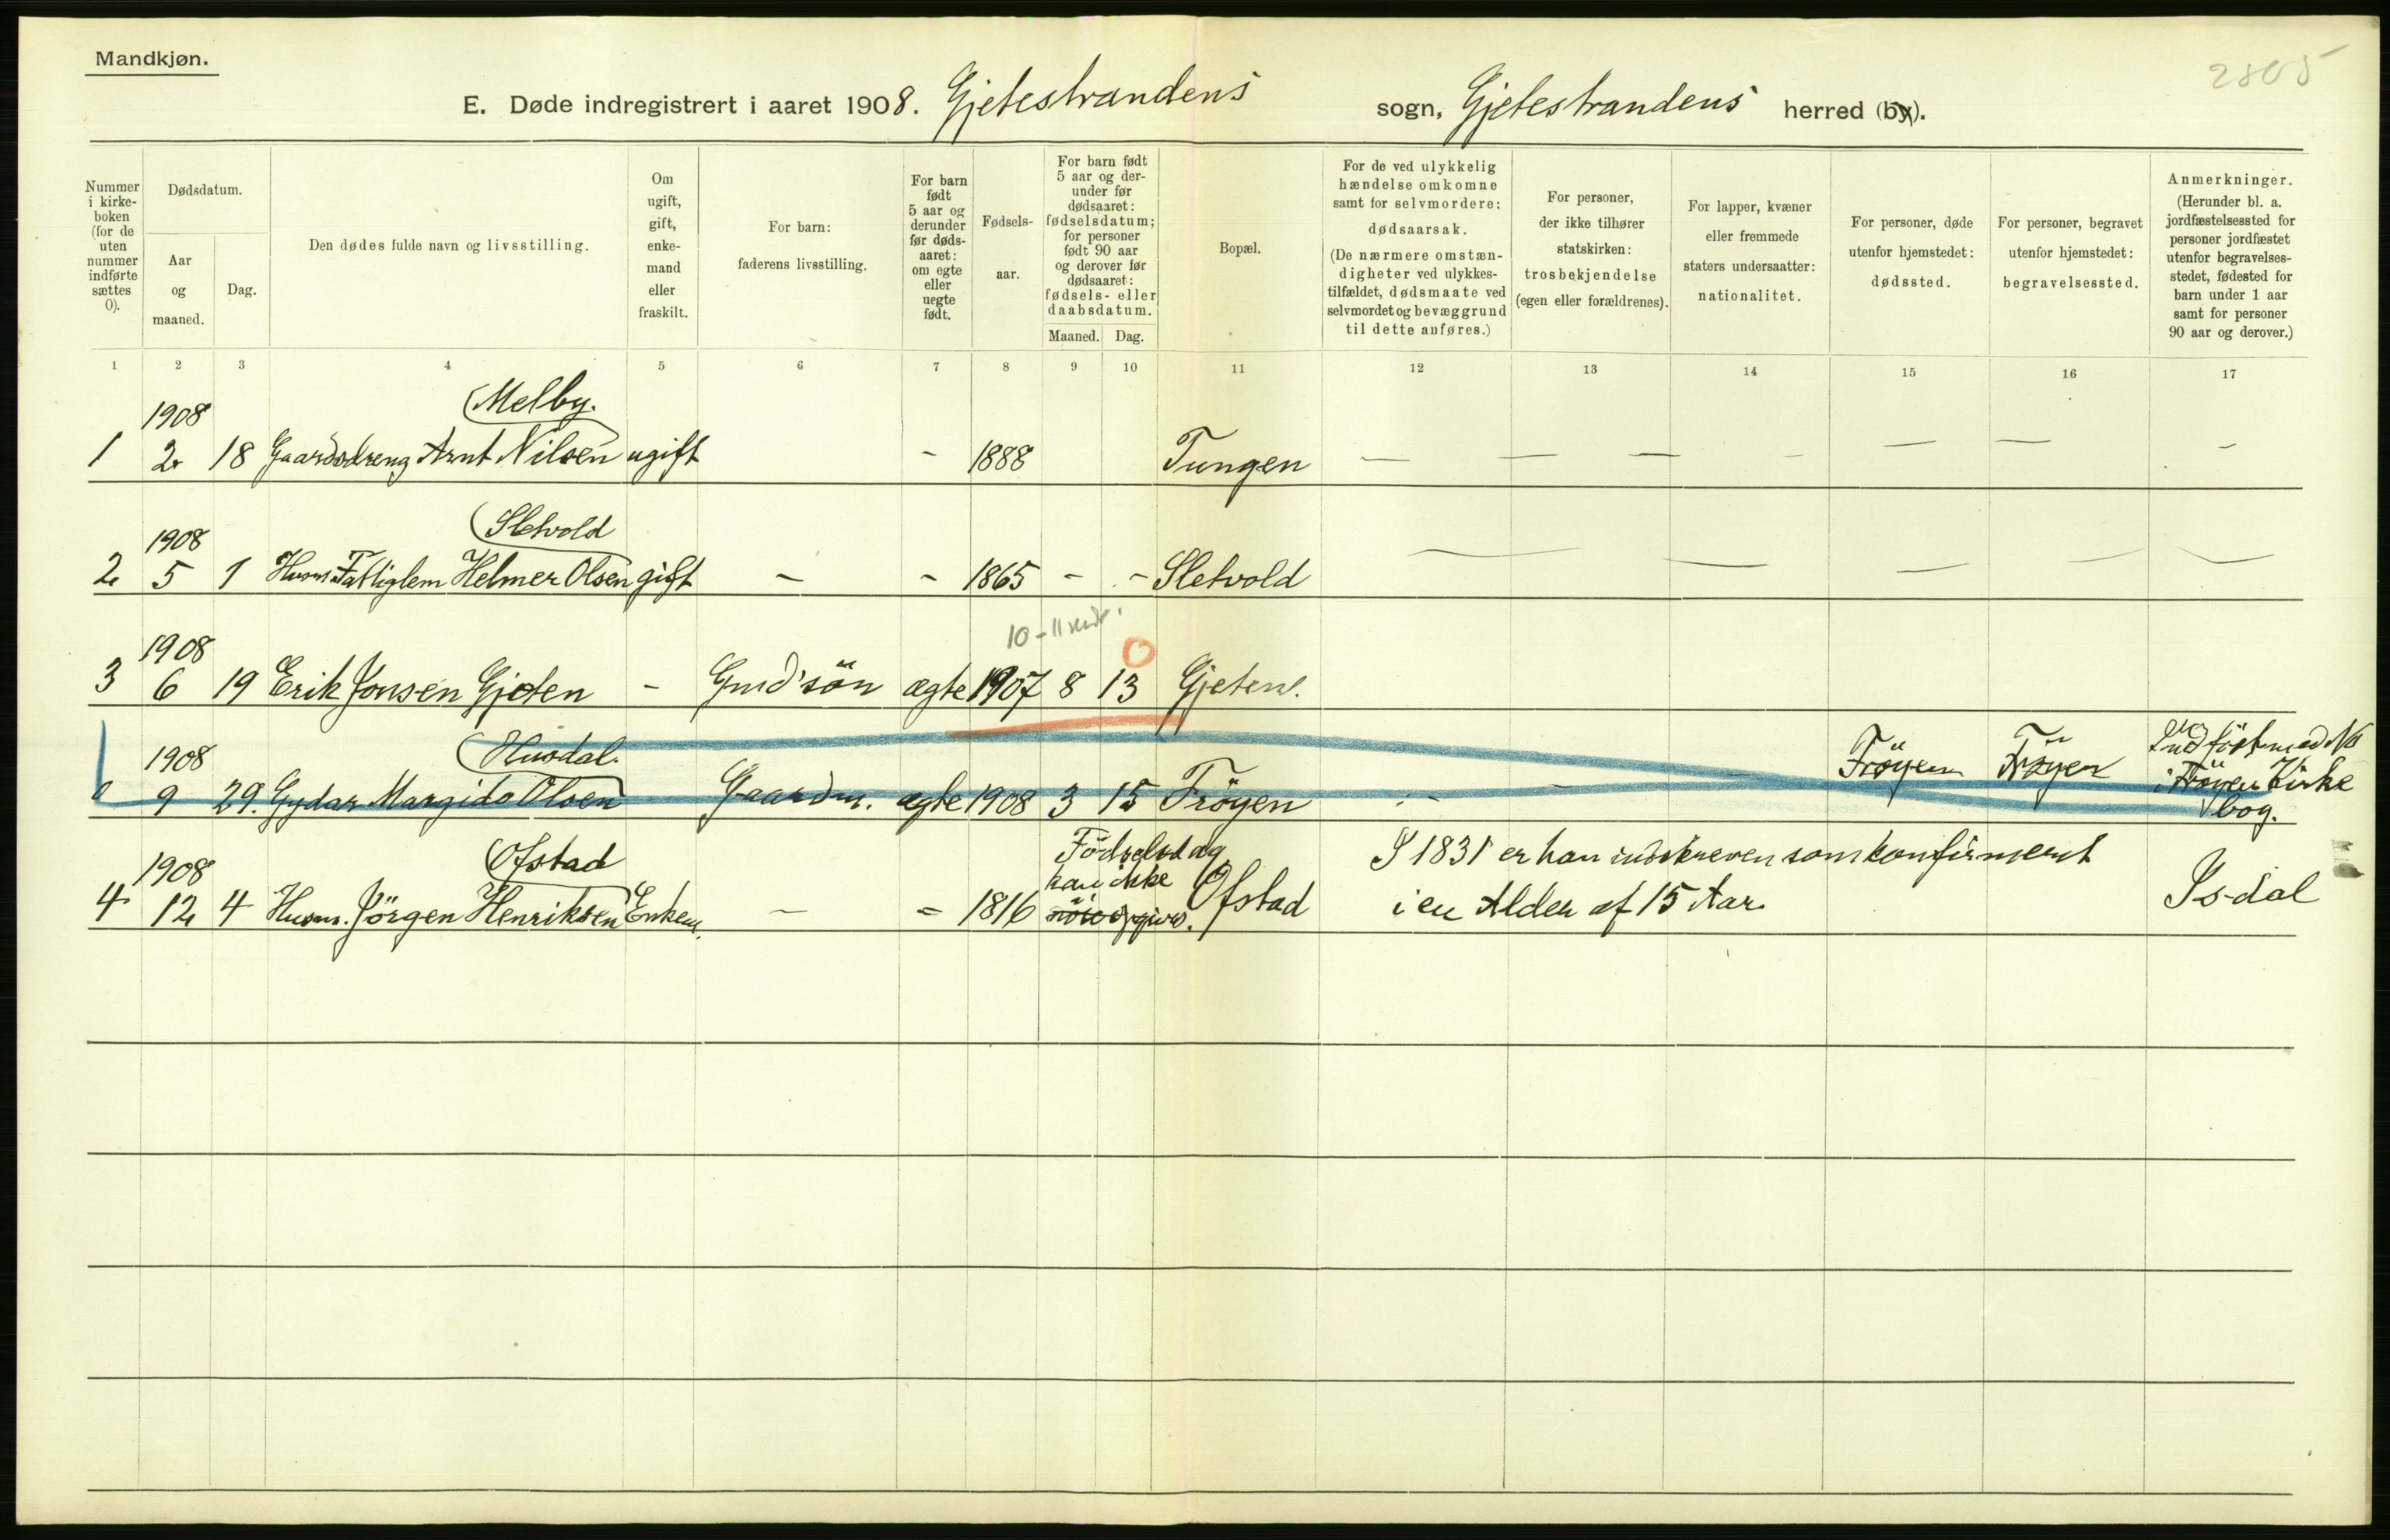 Mandkjøn.
2805
E. Døde indregistrert i aaret 1908. Gjetestrandens sogn, Gjetestrandens herred (by).
Nummer i kirke-boken (for de uten nummer indførte sættes 0).
Dødsdatum.
Aar og maaned.
Dag.
Den dødes fulde navn og livsstilling.
Om ugift, gift, enke-mand eller fraskilt.
For barn: faderens livsstilling.
For barn født 5 aar og derunder før døds-aaret: om egte eller uegte født.
Fødsels-aar.
For barn født 5 aar og der-under før dødsaaret: fødselsdatum; for personer født 90 aar og derover før dødsaaret: fødsels- eller daabsdatum.
Maaned. Dag.
Bopæl.
For de ved ulykkelig hændelse omkomne samt for selvmordere: dødsaarsak. (De nærmere omstæn-digheter ved ulykkes-tilfældet, dødsmaate ved selvmordet og bevæggrund til dette anføres.)
For personer, der ikke tilhører statskirken: trosbekjendelse (egen eller forældrenes).
For lapper, kvæner eller fremmede staters undersaatter: nationalitet.
For personer, døde utenfor hjemstedet: dødssted.
For personer, begravet utenfor hjemstedet: begravelsessted.
Anmerkninger. (Herunder bl. a. jordfæstelsessted for personer jordfæstet utenfor begravelses-stedet, fødested for barn under 1 aar samt for personer 90 aar og derover.)
1 2 3 4 5 6 7 8 9 10 11 12 13 14 15 16 17
1908 Melby.
1 2 18 Gaardsdreng Arnt Nilsen ugift - 1888 Tungen — — — - — — -
1908 Sletvold
2 5 1 Husm. Fattiglem Helmer Olsen gift - - 1865 - - Sletvold
10-11
1908 0
3 6 19 Erik Jonsen Gjeten - Gmd'sön ægte 1907 8 13 Gjeten.
1908 Husdal. Fröyen Fröyen Indført med No
0 9 29. Gydar Margido Olsen Gaardm. ægte 1908 3 15 Fröyen i Fröyen Kirke
bog.
1908 Ofstad Födselsdag I 1831 er han indskreven som konfirmeret
kan ikke
4 12 4 Husm. Jörgen Henriksen Enkem. - - 1816 Ofstad i en Alder af 15 Aar. Is-dal